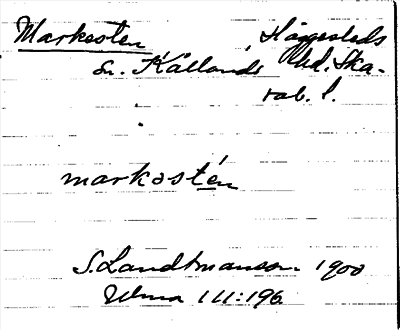 Markesten Häggesleds
sn. Kållands hd. Ska-
rab. l.
markəstén
S. Landtmanson 1900
Ulma 111:196